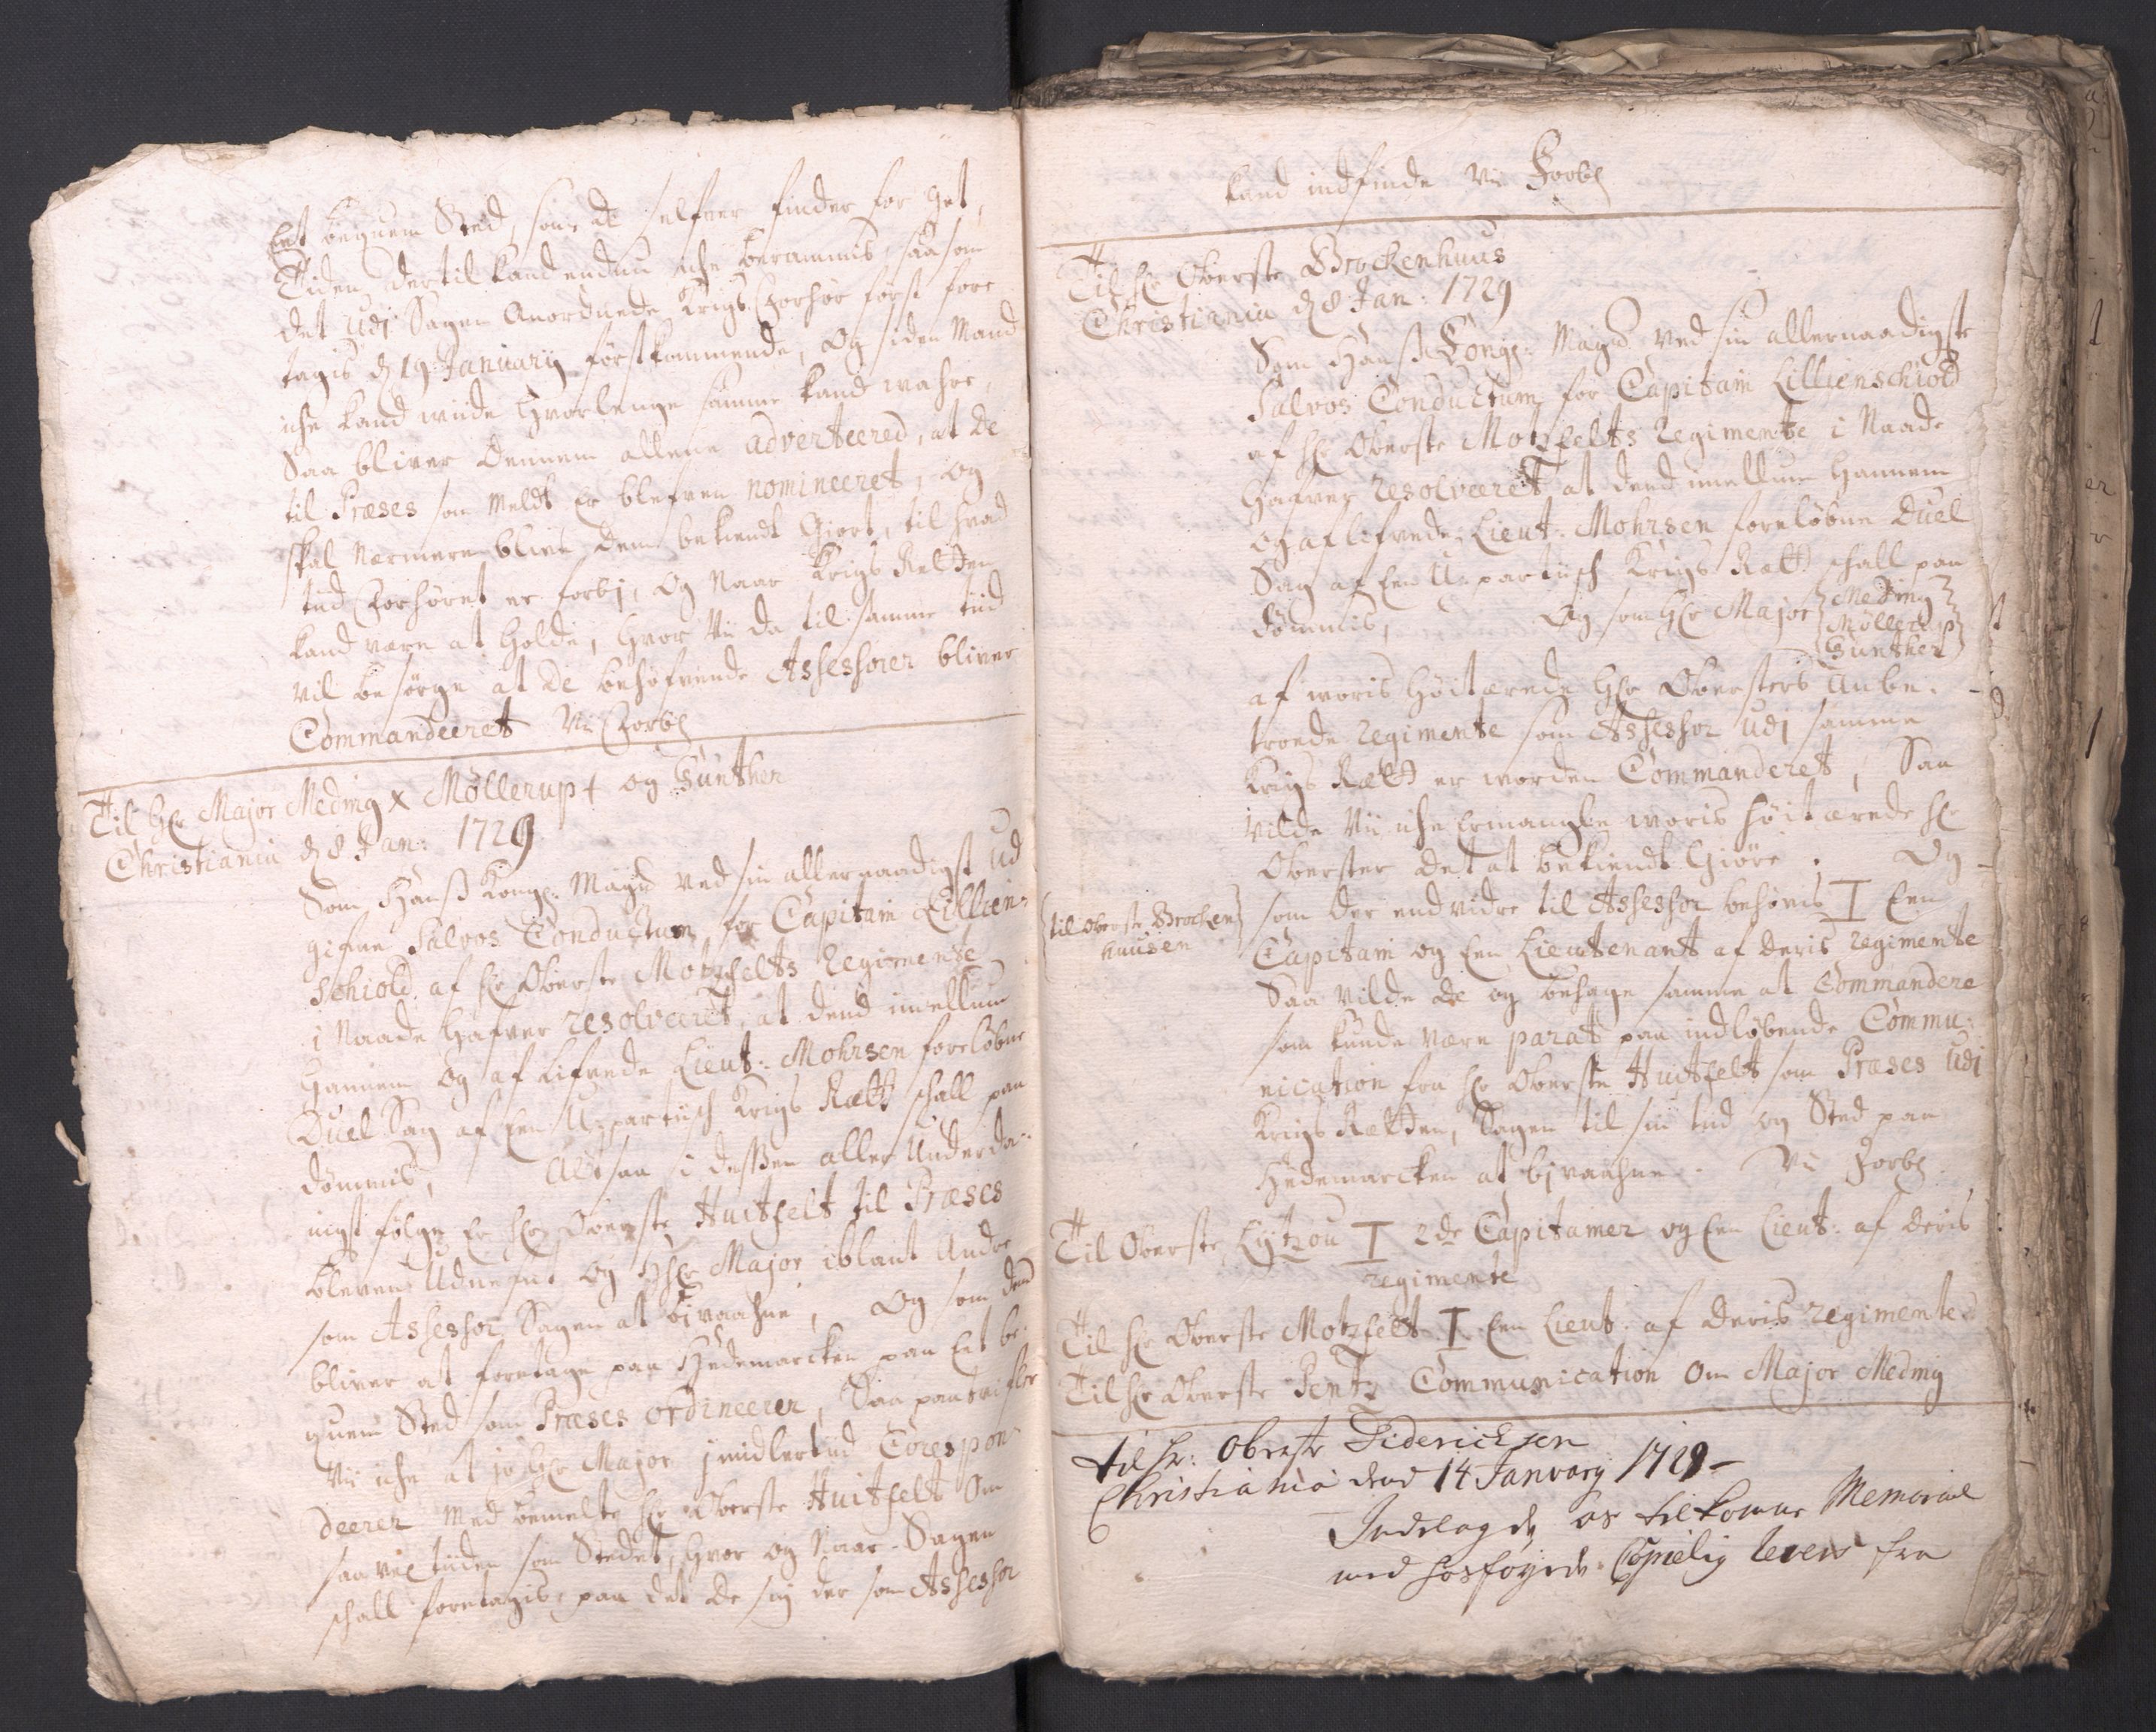 Eet beqvem Sted, som de selfver finder for got,
Tiden dertil kand endnu iche berammis, saasom
det udj Sagen Anordnede Krigs Forhør først fore
tagis d 19 Januarij førstkommende, Og siden Mand
iche kand viide hvorlenge samme kand wahre,
Saa bliver dennem allene adverteered, at de
til Præses som meldt er blefven nomineeret, og
skal nærmere blive dem bekiendt Giort, til hvad
tiid Forhøret er forbj, Og Naar Krigs Retten
kand være at holde, hvor Vii da til samme tiid
vil besørge at de behøfvende Assessorer bliver
Commandeeret Vii Forbl
Til Hr Major Meding x Møllerup + og Günther
Christiania d 8 Jan: 1729
Som Hans Kongl: Mayt ved sin allernaadigst ud
gifne Salvos Conductum, for Capitain Lillien-
schiold af Hr Oberste Motzfelts Regimente
i Naade hafver resolveret, at dend imellum
hannem og aflifvede Lieut: Mohrsen foreløbne
Duel Sag af Een U-partiisch Krigs Rætt schall paa
dømmis, Altsaa i dessen aller Underda-
nigst følge er Hr Oberste Huitfelt til Præses
bleven Udnefnt og Hr Major iblant Andre
som Assessor Sagen at bivaahne, Og som dend
bliver at foretage paa Hedemarcken paa Eet be-
qvem Sted som Præses ordineerer, Saa paatvifler
Vii iche at jo Hr Major imidlertiid Correspon-
deerer med bemelte Hr Oberste Huitfelt Om
saavel tiiden som Stedet, hvor og Naar Sagen
schall foretagis, paa det de sig der som Assessor
kand indfinde Vii Forbl
Til Hr Oberste Brockenhuus
Christiania d 8 Jan: 1729
Som Hans Kongl: Mayt ved sin allernaadigste
Salvos Conductum for Capitain Lillienschiold
af Hr Oberste Motzfelts Regimente i Naade
hafver resolveeret at dend imellum hannem
og aflifvede Lieut: Mohrsen foreløbne Duel
Sag af Een U-partiisch Krigs Rætt schall paa
dømmis, Og som Hr Major Meding
Møllerup
Günther
af woris Høitærede Hr Oberstes Anbe-
troede Regimente som Assessor udj samme
Krigs Rætt er worden Commanderet, Saa
vilde Vii iche Ermangle woris Høitærede Hr
Oberster det at bekiendt Giøre. Og
til Oberste Brocken
huusen
som der end vidre til Assessor behøvis I Een
Capitain og Een Lieutenant af deris Regimente
Saa vilde de og behage samme at Commandere
som kunde være parat paa indløbende Commu-
nication fra Hr Oberste Huitfelt som Præses udj
Krigs Rætten, Sagen til sin tiid og Sted paa
Hedemarcken at bivaahne. Vii Forbl.
Til Oberste Lytzou I 2de Capitainer og Een Lieut: af deris
Regimente
Til Hr Oberste Motzfelt I Een Lieut. af deris Regimente
Til Hr Oberste Pentz Communication Om Major Meding
til Hr: Oberste Diderichsen
Christiania dend 14 January 1729
Indlagde os tilkomne Memorial
med hosføyede Copielig levers fra